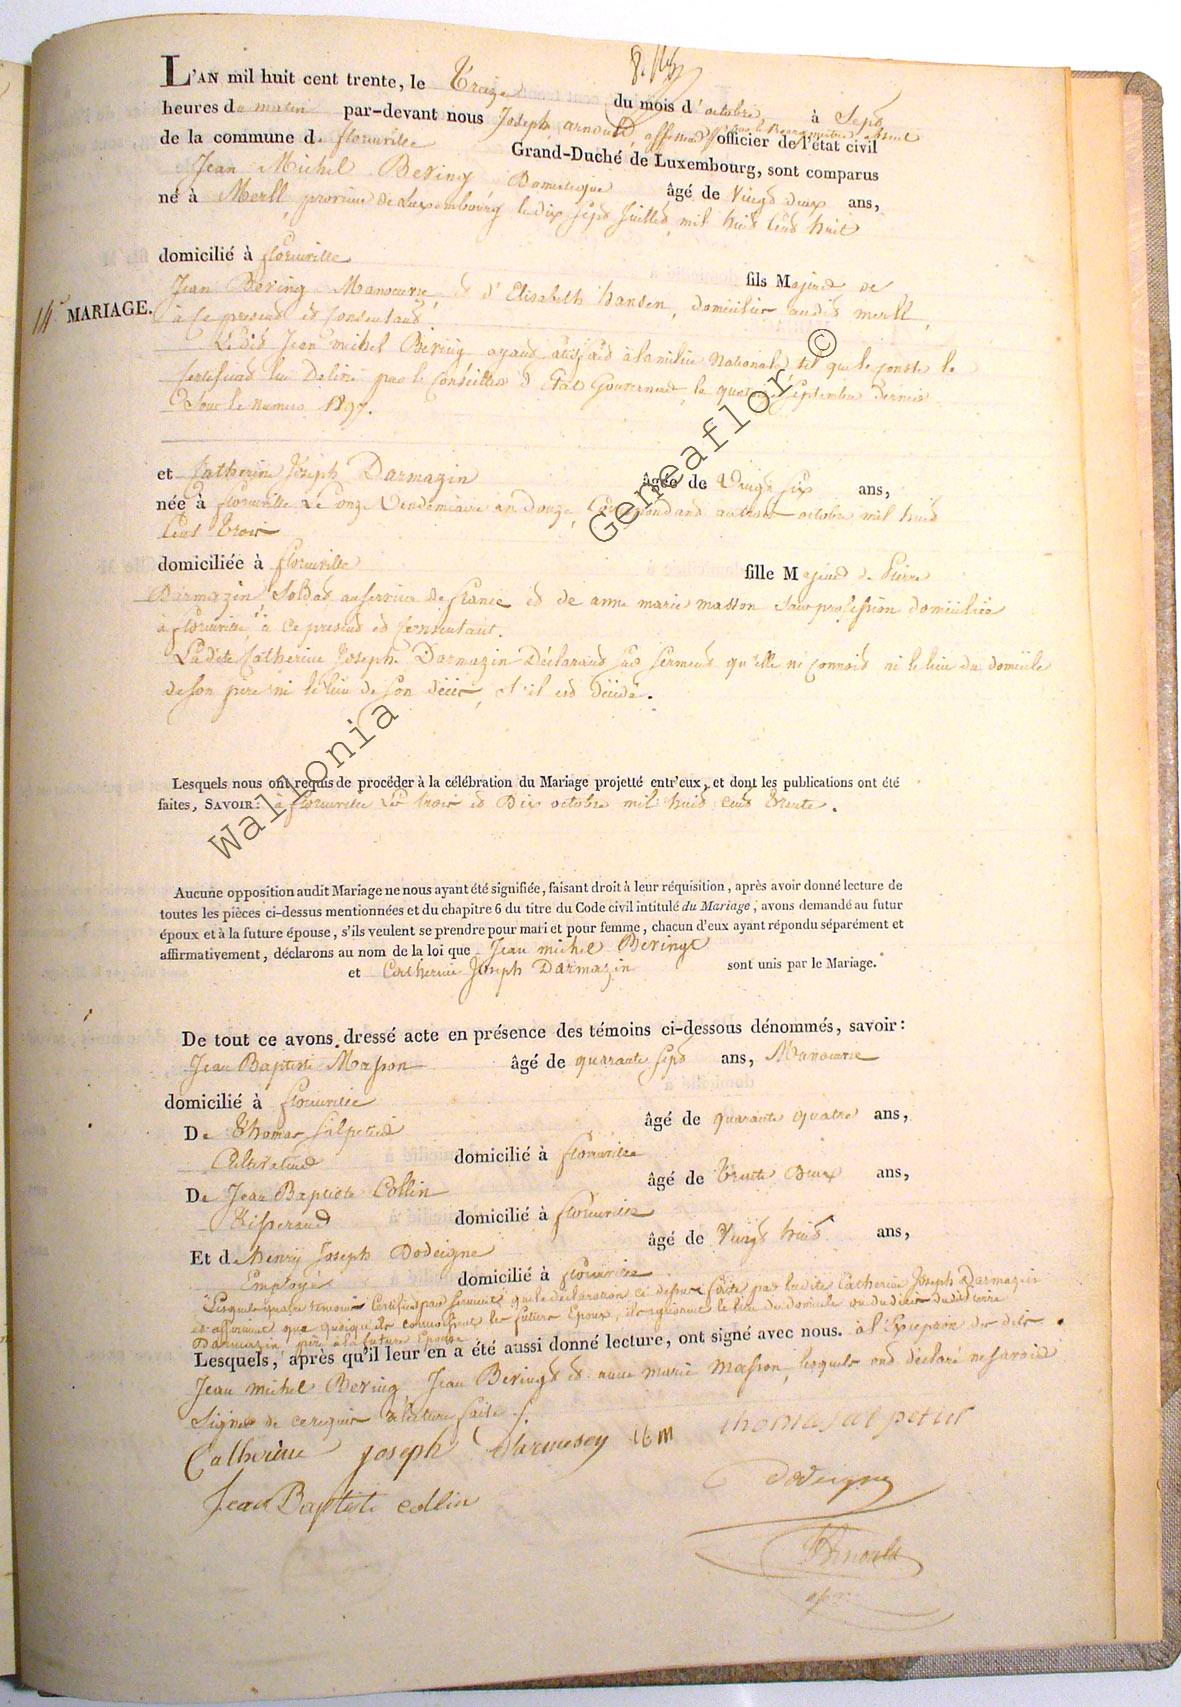 L'AN mil huit cent trente, le Treize du mois d'octobre, à Sept
heures du matin par-devant nous Joseph arnould, assesseur officier de l'état civil
de la commune de florenville Grand-Duché de Luxembourg, sont comparus
Jean Michel Bering Domestique âgé de Vingt deux ans,
né à Merll, province de Luxembourg le dix sept Juillet mil huit cent huit
domicilié à florenville fils Majeur de
14e MARIAGE.
Jean Bering Manoeuvre, et d'Elisabeth hansen, domiciliés audit merll,
à ce present et Consentant
Ledit Jean michel Bering ayant satisfait à la milice Nationale tel que le conste le
Certificat lui Delivré par le Conseiller d'Etat Gouverneur, le quatre Septembre Dernier
Sous le numero 1897.
et Catherine Joseph Darmazin âgée de Vingt six ans,
née à florenville Le onze Vendemiaire an Douze, Correspondant au octobre mil huit
Cent Trois
domiciliée à florenville fille Majeure de Pierre
Darmazin Soldat au service de france et de anne marie masson Sans profession domiciliée
à florenville, à ce present et Consentant.
Ladite Catherine Joseph Darmazin Déclarant sous serment qu'elle ne connoit ni le lieu du domicile
de son père ni le lieu de son décès, s'il est décédé.
Lesquels nous ont requis de procéder à la célébration du Mariage projetté entr'eux, et dont les publications ont été
faites, SAVOIR: à florenville Les trois et Dix octobre mil huit cent trente.
Aucune opposition audit Mariage ne nous ayant été signifiée, faisant droit à leur réquisition, après avoir donné lecture de
toutes les pièces ci-dessus mentionnées et du chapitre 6 du titre du Code civil intitulé du Mariage; avons demandé au futur
époux et à la future épouse, s'ils veulent se prendre pour mari et pour femme, chacun d'eux ayant répondu séparément et
affirmativement, déclarons au nom de la loi que Jean michel Bering
et Catherine Joseph Darmazin sont unis par le Mariage.
De tout ce avons dressé acte en présence des témoins ci-dessous dénommés, savoir:
Jean Baptiste Masson âgé de quarante sept ans, Manoeuvre
domicilié à florenville
De Thomas Salpeteur âgé de quarante quatre ans,
Cultivateur domicilié à florenville
De Jean Baptiste Collin âgé de trente Deux ans,
Tisserand domicilié à florenville
Et de henry Joseph Dodeigne âgé de Vingt huit ans,
Employé domicilié à florenville
Lesquels quatre temoins Certifient par serment que la déclaration ci dessus faite par ladite Catherine Joseph Darmazin
et affirment que quoiqu'ils connoissent les futurs Epoux, ils ignorent le lieu du domicile ou du décès dudit Pierre
Darmazin, père à la future Epouse
Lesquels, après qu'il leur en a été aussi donné lecture, ont signé avec nous. à l'Exeption des dits
Jean michel Bering, Jean Bering et anne marie Masson, lesquels ont déclaré ne savoir
Signer de ce requis Lecture faite.
Catherine joseph darmesey ibm thomas salpeteur
Jean Baptiste collin dodeigne
Arnould
Wallonia Geneaflor ©